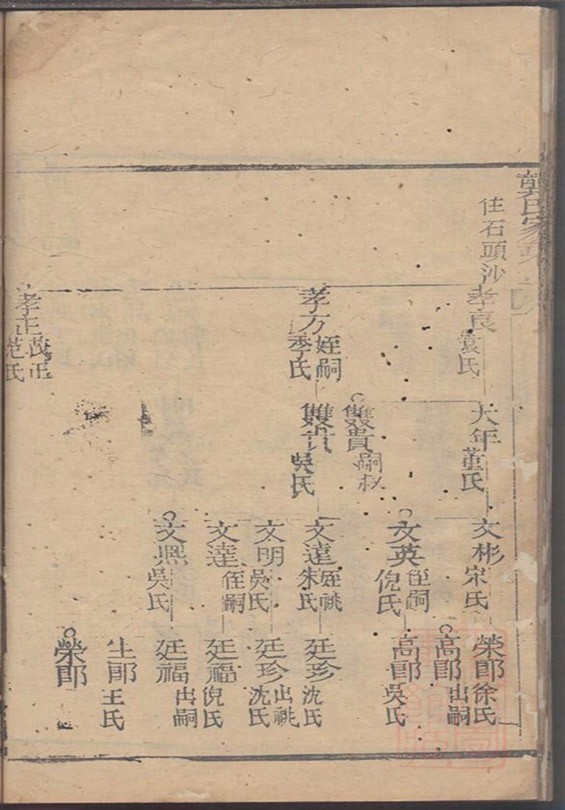 龔氏家乘
住石頭沙
孝良 袁氏
大年 董氏
文彬 宋氏
榮郎 徐氏
高郎 出嗣
雙貴 嗣叔
文英 侄嗣 倪氏
高郎 吳氏
孝方 姪嗣 季氏
雙貴 吳氏
文遠 姪祧 朱氏
廷珍 沈氏
文明 吳氏
廷珍 出祧 沈氏
文達 侄嗣
廷福 倪氏
文熙 吳氏
廷福 出嗣
生郎 王氏
榮郎
孝正 茂正 范氏